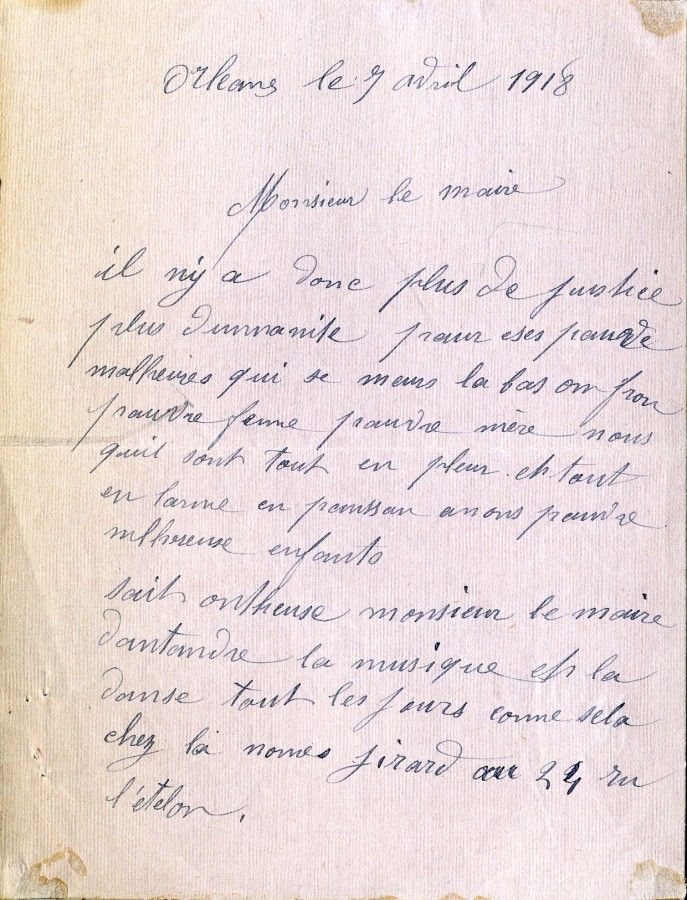 Orleans le 7 avril 1918
Monsieur le maire
il ny a donc plus de justice
plus dumanite pour ses pauvre
malheures qui se meurs la bas on fron
pauvre femme pauvre mère nous
quil sont tout en pleur et tout
en larme en panssan anons pauvre
mlhereuse enfants
sait ontheuse monsieur le maire
dantandre la musique et la
danse tout les jours comme sela
chez la nomes jirard au 24 ru
l'étélon.